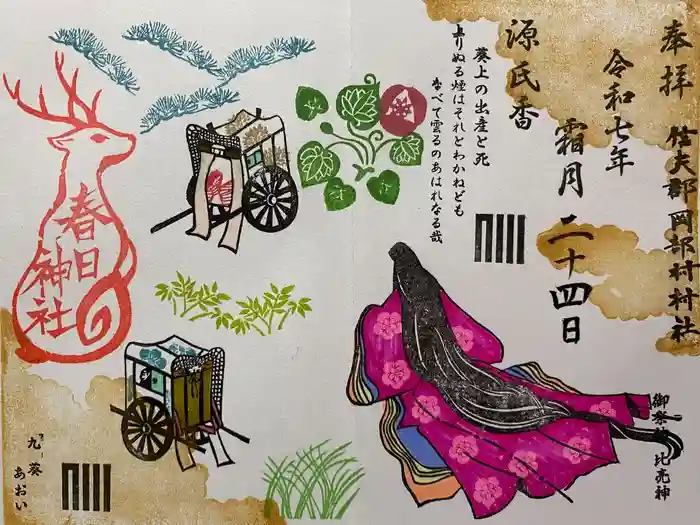 奉拝
佐夫郡岡部村村社
令和七年
霜月二十四日
源氏香
葵上の出産と死
上りぬる煙はそれとわかねども
なべて雲ゐのあはれなる哉
春日神社
御祭神
比売神
九葵
あおい